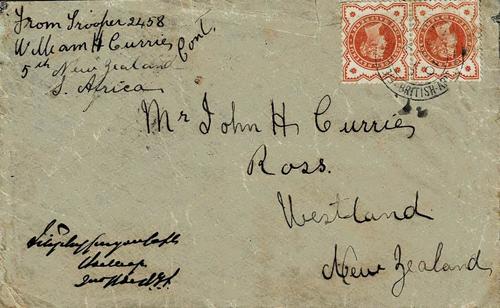 From Trooper 2458
William H Currie
5th New Zealand Cont.
S. Africa
BRITISH-A
Mr John H Currie
Ross.
Westland
New Zealand